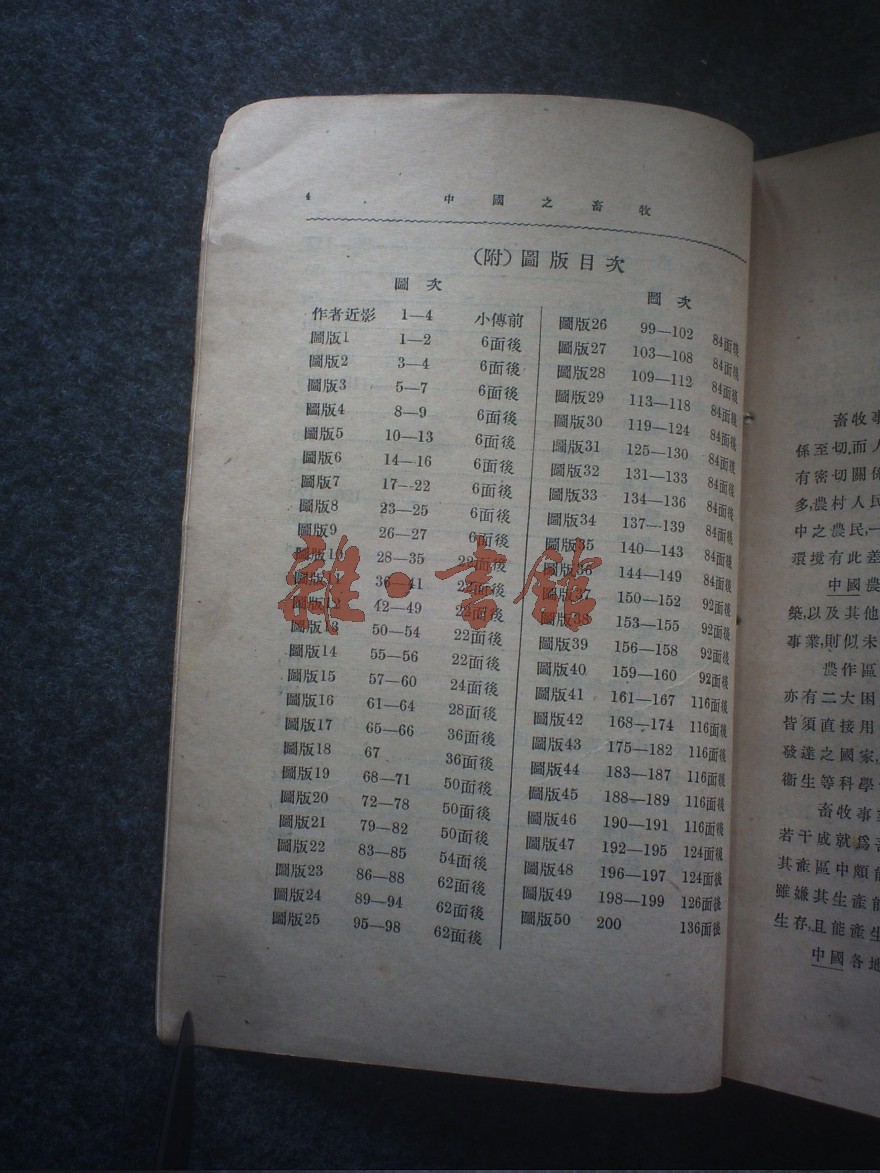 4 中國之畜牧
(附)圖版目次
圖次
作者近影 1—4 小傳前
圖版1 1—2 6面後
圖版2 3—4 6面後
圖版3 5—7 6面後
圖版4 8—9 6面後
圖版5 10—13 6面後
圖版6 14—16 6面後
圖版7 17—22 6面後
圖版8 23—25 6面後
圖版9 26—27 6面後
圖版10 28—35 22面後
圖版11 36—41 22面後
圖版12 42—49 22面後
圖版13 50—54 22面後
圖版14 55—56 22面後
圖版15 57—60 24面後
圖版16 61—64 28面後
圖版17 65—66 36面後
圖版18 67 36面後
圖版19 68—71 50面後
圖版20 72—78 50面後
圖版21 79—82 50面後
圖版22 83—85 54面後
圖版23 86—88 62面後
圖版24 89—94 62面後
圖版25 95—98 62面後
圖次
圖版26 99—102 84面後
圖版27 103—108 84面後
圖版28 109—112 84面後
圖版29 113—118 84面後
圖版30 119—124 84面後
圖版31 125—130 84面後
圖版32 131—133 84面後
圖版33 134—136 84面後
圖版34 137—139 84面後
圖版35 140—143 84面後
圖版36 144—149 84面後
圖版37 150—152 92面後
圖版38 153—155 92面後
圖版39 156—158 92面後
圖版40 159—160 92面後
圖版41 161—167 116面後
圖版42 168—174 116面後
圖版43 175—182 116面後
圖版44 183—187 116面後
圖版45 188—189 116面後
圖版46 190—191 116面後
圖版47 192—195 124面後
圖版48 196—197 124面後
圖版49 198—199 126面後
圖版50 200 136面後
畜牧事
係至切,而人
有密切關係
多,農村人民
中之農民,一
環境有此差
中國農
築,以及其他
事業,則似未
農作區
亦有二大困
皆須直接用
發達之國家,
衞生等科學
畜牧事業
若干成就,爲吾
其產區中頗能
雖嫌其生產能
生存,且能產生
中國各地
雜·書館